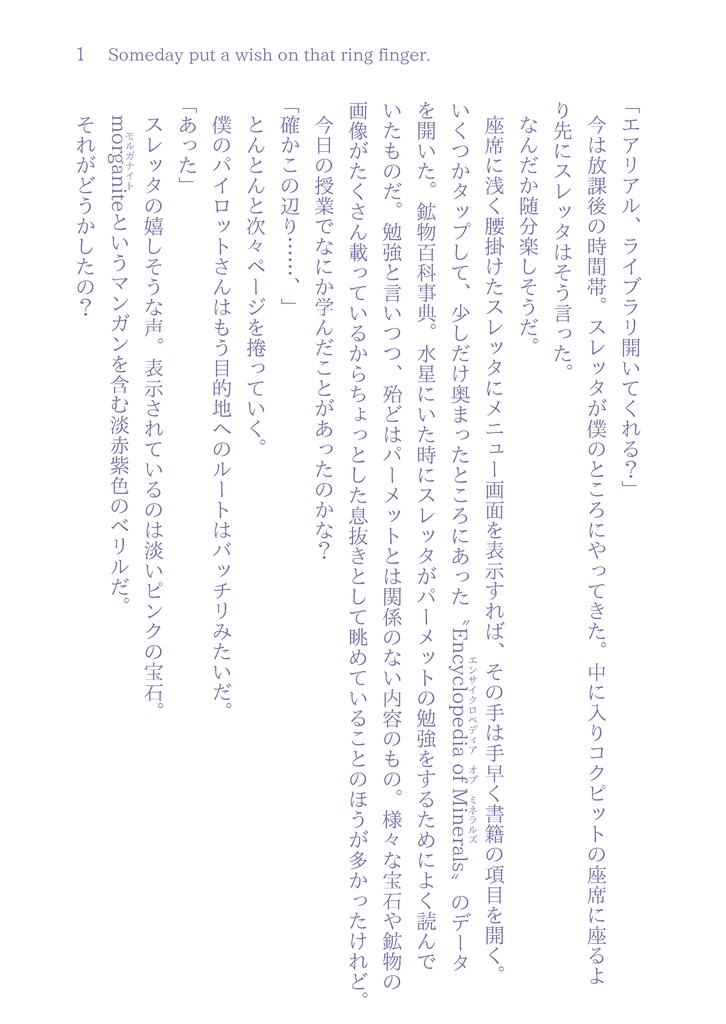 1 Someday put a wish on that ring finger.
「エアリアル、ライブラリ開いてくれる？」
今は放課後の時間帯。スレッタが僕のところにやってきた。中に入りコクピットの座席に座るよ
り先にスレッタはそう言った。
なんだか随分楽しそうだ。
座席に浅く腰掛けたスレッタにメニュー画面を表示すれば、その手は手早く書籍の項目を開く。
エンサイクロペディア オブ ミネラルズ
いくつかタップして、少しだけ奥まったところにあった〝Encyclopedia of Minerals〟のデータ
を開いた。鉱物百科事典。水星にいた時にスレッタがパーメットの勉強をするためによく読んで
いたものだ。勉強と言いつつ、殆どはパーメットとは関係のない内容のもの。様々な宝石や鉱物の
画像がたくさん載っているからちょっとした息抜きとして眺めていることのほうが多かったけれど。
今日の授業でなにか学んだことがあったのかな？
「確かこの辺り……、」
とんとんと次々ページを捲っていく。
僕のパイロットさんはもう目的地へのルートはバッチリみたいだ。
「あった」
スレッタの嬉しそうな声。表示されているのは淡いピンクの宝石。
モルガナイト
morganiteというマンガンを含む淡赤紫色のベリルだ。
それがどうかしたの？